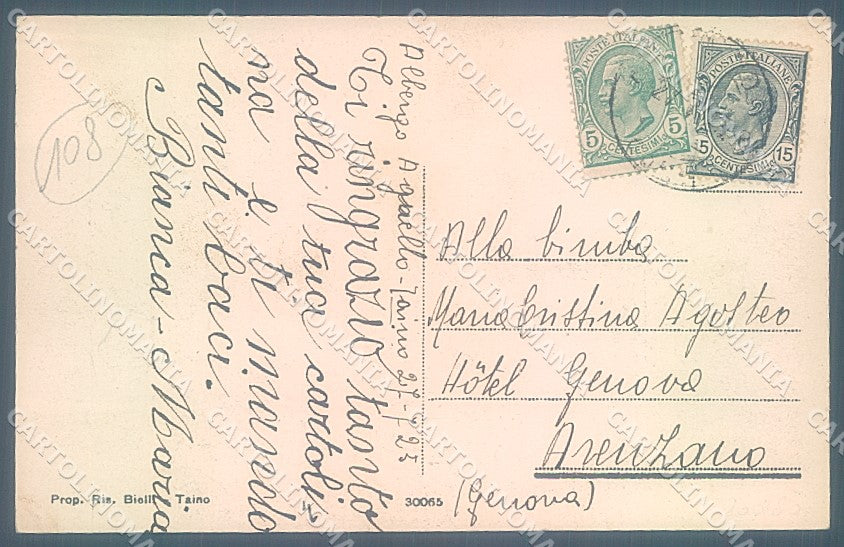 Albergo Agnello - Taino 27-7-25
Ti ringrazio tanto
della tua cartoli
na e ti mando
tanti baci.
Bianca-Maria
108
POSTE ITALIANE
5 5
CENTESIMI
POSTE ITALIANE
15 15
CENTESIMI
Alla bimba
Maria Cristina Agosteo
Hôtel Genova
Arenzano
(Genova)
Prop. Ris. Bielli Taino
30065
CARTOLINOMANIA